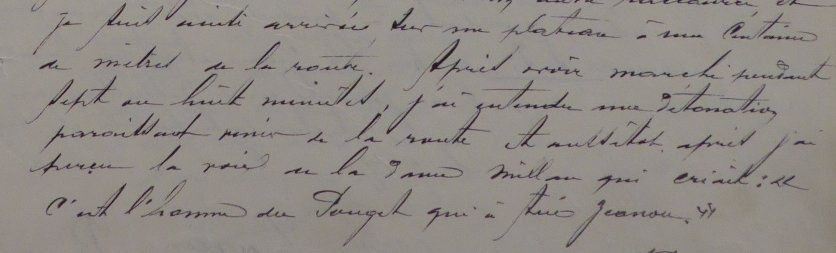 je suis ainsi arrivée sur un plateau à une centaine
de mètres de la route. Après avoir marché pendant
sept ou huit minutes, j'ai entendu une détonation
paraissant venir de la route et aussitôt après j'ai
perçu la voix de la dame Millau qui criait : «
C'est l'homme du Pouget qui a tué Jeanou. »